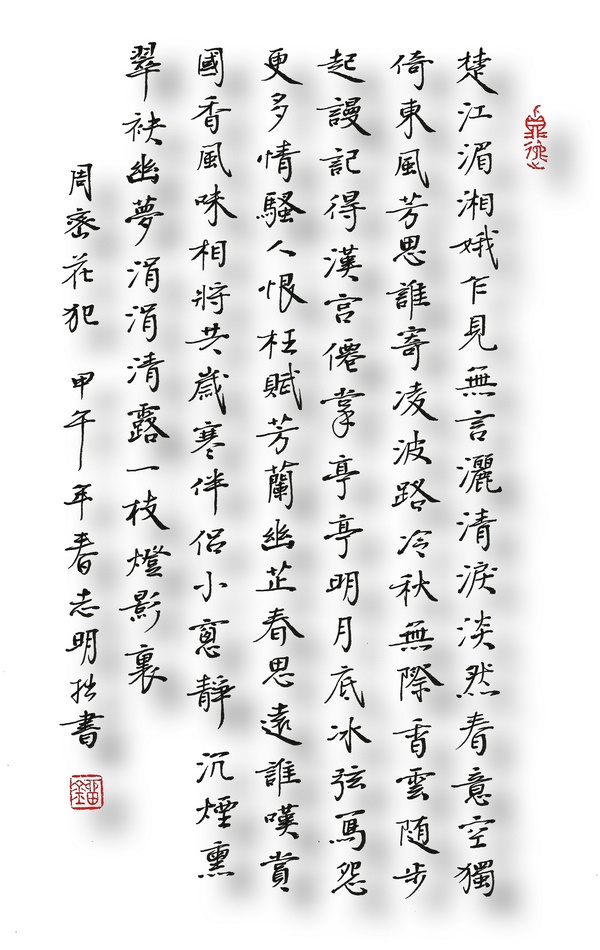 楚江湄湘娥乍見無言灑清淚淡然春意空獨
倚東風芳思誰寄凌波路冷秋無際香雲随步
起謾記得漢宮僊掌亭亭明月底冰弦寫怨
更多情騷人恨枉賦芳蘭幽芷春思遠誰嘆賞
國香風味相將共歲寒伴侣小窻靜沉煙熏
翠袂幽夢涓涓清露一枝燈影裏
周密花犯 甲午年春志明拙書